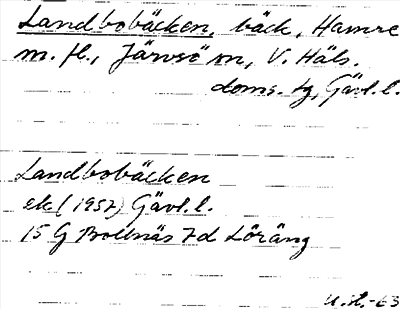 Landbobäcken, bäck, Hamre
m. fl., Järvsö sn, V. Häls.
doms. tg, Gävl. l.
Landbobäcken
ek (1957) Gävl. l.
15 G Bollnäs 7d Löräng
U.H.-63